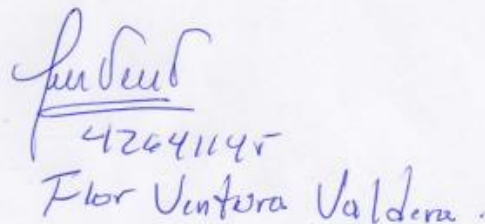 42641145
Flor Ventura Valdera.